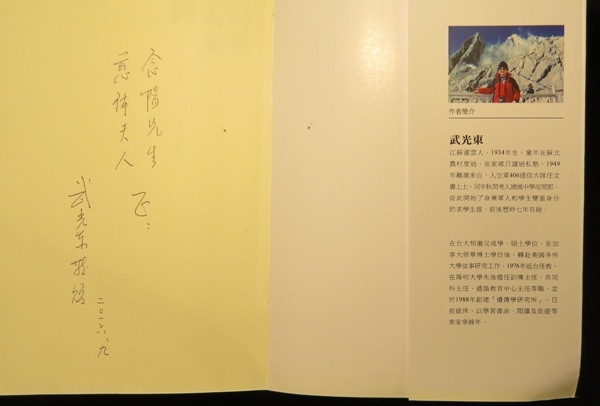 念陽先生
夫人
正:
武光东敬贈
二〇一六、九
作者簡介
武光東
江蘇灌雲人,1934年生。童年在蘇北
農村度過,在家鄉只讀過私塾。1949
年離滬來台,入空軍406通信大隊任文
書上士。同年秋間考入建國中學夜間部,
從此開始了身兼軍人和學生雙重身分
的求學生涯,前後歷時七年有餘。
在台大相繼完成學、碩士學位,至加
拿大修畢博士學位後,轉赴美國多所
大學從事研究工作。1976年返台任教。
在陽明大學先後擔任訓導主任、共同
科主任、通識教育中心主任等職,並
於1988年創建「遺傳學研究所」。目
前退休,以學習書法、閱讀及旅遊等
來安享餘年。